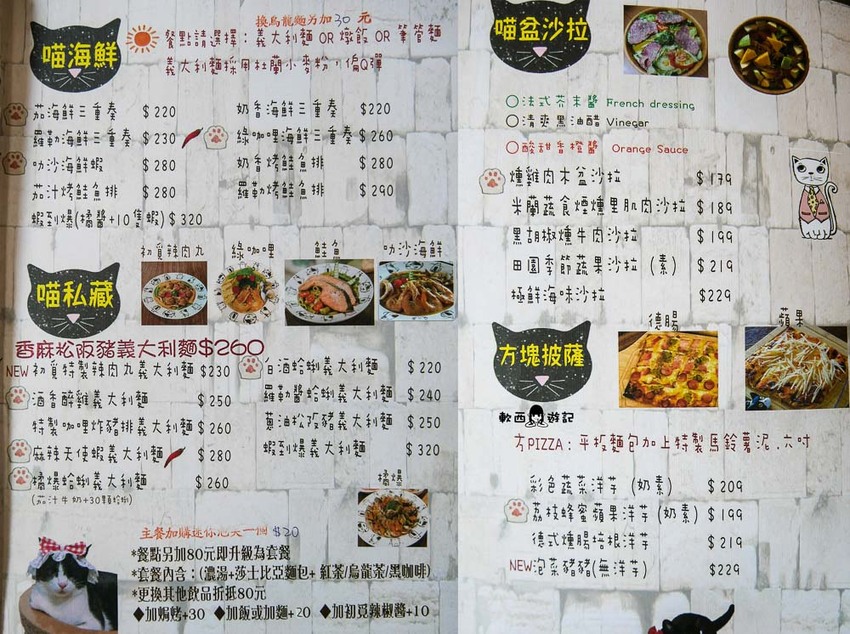 喵海鮮
換烏龍麵另加30元
餐點請選擇：義大利麵 OR 燉飯 OR 筆管麵
義大利麵採用杜蘭小麥粉，偏Q彈
茄海鮮三重奏 $220
羅勒海鮮三重奏 $230
叻沙海鮮蝦 $280
茄汁烤鮭魚排 $280
蝦到爆(橘醬+10隻蝦) $320
奶香海鮮三重奏 $220
綠咖哩海鮮三重奏 $260
奶香烤鮭魚排 $280
羅勒烤鮭魚排 $290
初覓辣肉丸 綠咖哩 鮭魚 叻沙海鮮
喵私藏
香麻松阪豬義大利麵$260
NEW初覓特製辣肉丸義大利麵 $230
酒香醉雞義大利麵 $250
特製咖哩炸豬排義大利麵 $260
麻辣天使蝦義大利麵 $260
橘爆蛤蜊義大利麵 $260
(茄汁牛奶+30顆蛤蜊)
白酒蛤蜊義大利麵 $220
羅勒醬蛤蜊義大利麵 $240
蔥油松阪豬義大利麵 $250
蝦到爆義大利麵 $320
橘爆
主餐加購迷你泡芙一個 $20
*餐點另加80元即升級為套餐
*套餐內容：(濃湯+莎士比亞麵包+ 紅茶/烏龍茶/黑咖啡)
*更換其他飲品折抵80元
◆加焗烤+30 ◆加飯或加麵+20 ◆加初覓辣椒醬+10
喵盆沙拉
○法式芥末醬 French dressing
○清爽黑油醋 Vinegar
○酸甜香橙醬 Orange Sauce
燻雞肉木盆沙拉 $179
米蘭蔬食煙燻里肌肉沙拉 $189
黑胡椒燻牛肉沙拉 $199
田園季節蔬果沙拉 (素) $219
極鮮海味沙拉 $229
方塊披薩
德腸 蘋果
軟西遊記
方PIZZA：平板麵包加上特製馬鈴薯泥．六吋
彩色蔬菜洋芋 (奶素) $209
荔枝蜂蜜蘋果洋芋 (奶素) $199
德式燻腸培根洋芋 $219
NEW泡菜豬豬(無洋芋) $229